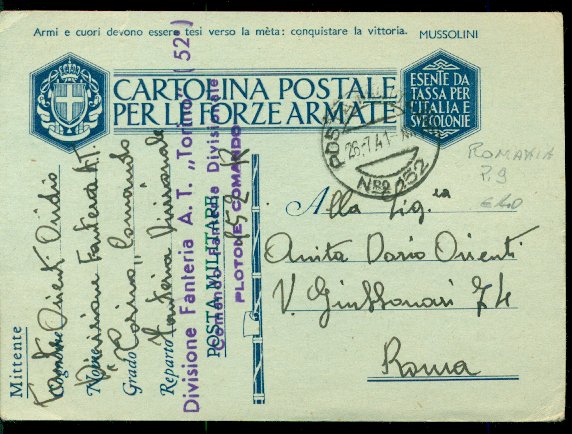 Armi e cuori devono essere tesi verso la mèta: conquistare la vittoria. MUSSOLINI
CARTOLINA POSTALE
PER LE FORZE ARMATE
ESENTE DA
TASSA PER
L'ITALIA E
SUE COLONIE
POSTA
26.7.41
NRO 152
ROMANIA
P. 9
Alla Sig.ra
Anita Dario Orienti
V. Giubbonari 74
Roma
Mittente
Cognome
Nome
Grado
Reparto
POSTA MILITARE
152 R
Fante Orienti Ovidio
Divisione Fanteria A.T.
"Torino" Comando
Fanteria Divisionale
Divisione Fanteria A. T. „Torino„ (52°)
Comando Fanteria Divisionale
PLOTONE COMANDO